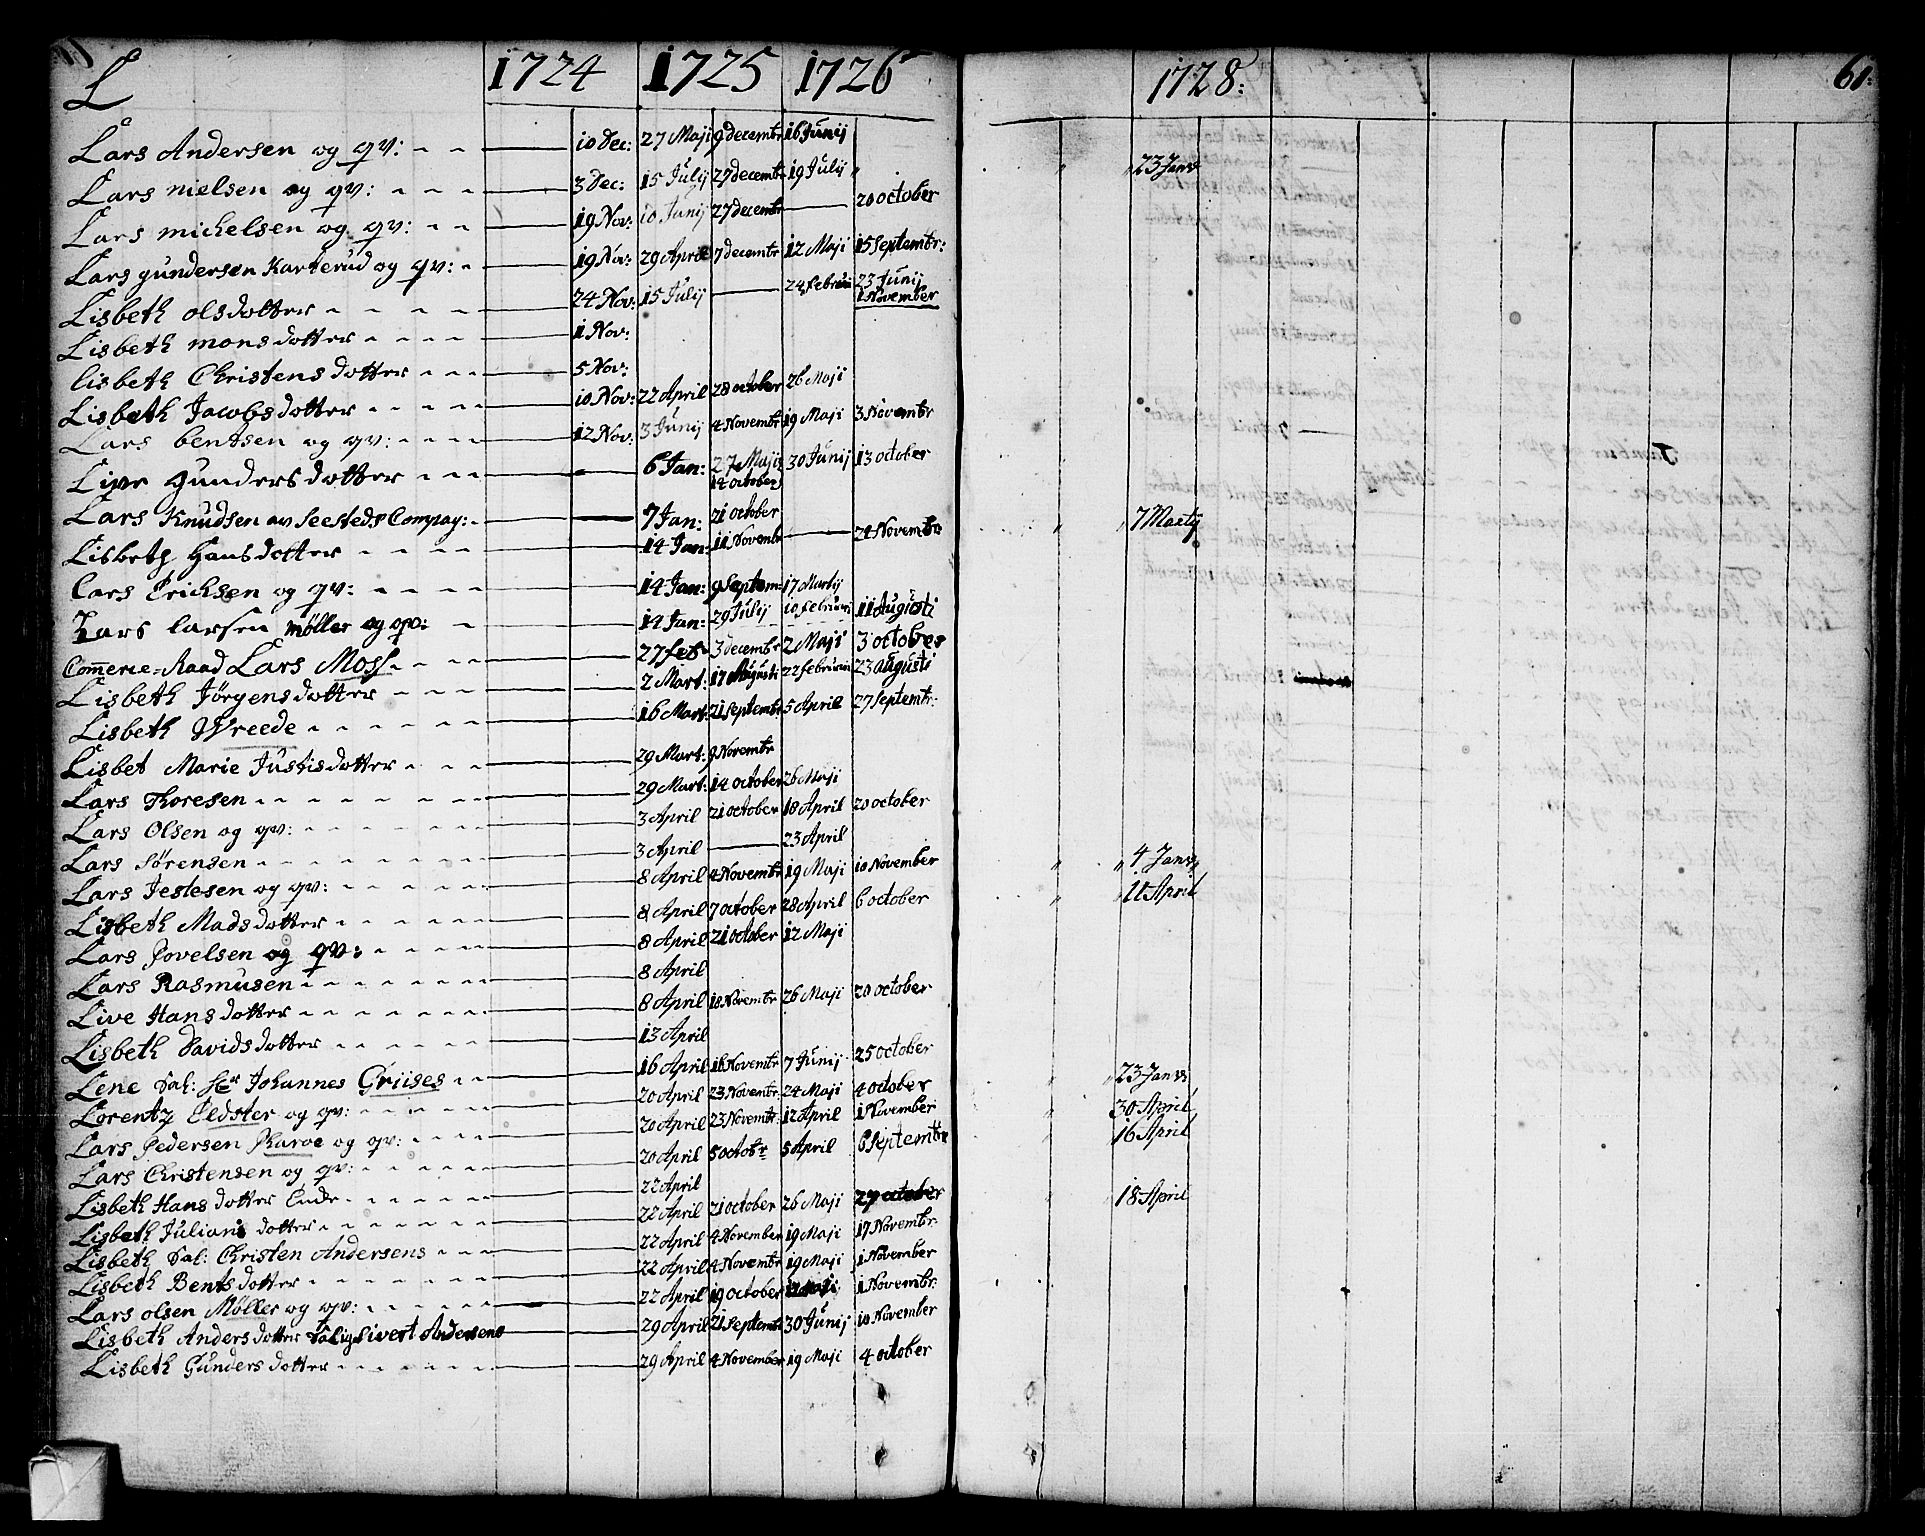 L 1724 1725 1726 1728: 61.
Lars Andersen og qv: 10 Dec: 27 Maji 9 decembr 16 Junij
Lars nielsen og qv: 3 Dec: 15 Julij 27 decembr 19 Julij 23 Janv
Lars michelsen og qv: 19 Nov: 10 Junij 27 decembr 20 october
Lars gundersen Karterud og qv: 19 Nov: 29 April 7 decembr 12 Maji 15 Septembr:
Lisbeth olsdotter 24 Nov: 15 Julij 24 februari 23 Junij 1 November
Lisbeth monsdotter 1 Nov:
lisbeth Christensdotter 5 Nov:
Lisbeth Jacobsdotter 10 Nov: 22 April 28 october 26 Maji
Lars bentsen og qv: 12 Nov: 3 Junij 4 Novembr 19 Maji 3 Novembr
Live Gundersdotter 6 Jan: 27 Maji 14 october 30 Junij 13 october
Lars Knudsen av Seesteds Compag: 7 Jan: 21 october 7 Martij
Lisbeth Hansdotter 14 Jan: 11 Novembr 24 Novembr
Lars Erichsen og qv: 14 Jan: 9 Septem: 17 Martij
Lars larsen møller og qv: 14 Jan: 29 Julij 10 februari 11 Augusti
Commerce-Raad Lars Moss 27 feb 3 decembr 2 Maji 3 october
Lisbeth Jørgensdotter 2 Mart: 17 Augusti 22 februarii 23 augusti
Lisbeth Wreede 16 Mart: 21 Septembr 5 April 27 Septembr:
Lisbet Marie Justisdotter 29 Mart: 9 Novembr
Lars Thoresen 29 Mart: 14 october 26 Maji
Lars Olsen og qv: 3 April 21 october 18 April 20 october
Lars Sørensen 3 April 23 April
Lars Jeslesen og qv: 8 April 4 Novembr 19 Maji 10 November 4 Janv
Lisbeth Madsdotter 8 April 7 october 28 April 6 october 11 April
Lars Povelsen og qv: 8 April 21 october 12 Maji
Lars Rasmusen 8 April
Live Hansdotter 8 April 18 Novembr 26 Maji 20 october
Lisbeth Davidsdotter 13 April
Lene Sal: Hr Johannes Griises 16 April 16 Novembr 7 Junij 25 october 23 Janv
Lorentz Eldster og qv: 20 April 23 Novembr 24 Maji 4 october 30 April
Lars Pedersen Karve og qv: 20 April 23 Novembr 12 April 1 November 16 April
Lars Christensen og qv: 20 April 5 octobr 5 April 6 Septembr
Lisbeth Hansdotter Ende 22 April 18 April
Lisbeth Juliansdotter 22 April 21 october 26 Maji 27 october
Lisbeth Sal: Christen Andersens 22 April 4 November 19 Maji 17 Novembr:
Lisbeth Bentsdotter 22 April 4 Novembr 19 Maji 1 November
Lars olsen Møller og qv: 22 April 19 october 12 Maji 1 Novembr:
Lisbeth Andersdotter Salig Sivert Andersens 29 April 21 Septembr 30 Junij 10 November
Lisbeth Gundersdotter 29 April 4 November 19 Maji 4 october